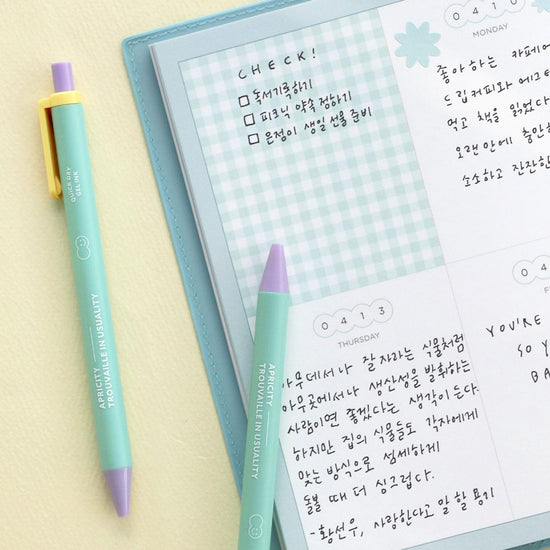 CHECK!
□ 독서기록하기
□ 피크닉 약속 정하기
□ 은정이 생일 선물 준비
0410
MONDAY
좋아하는 카페에
드립커피와 에그타
먹고 책을 읽었다
오랜만에 충만한
소소하고 잔잔한
0413
THURSDAY
아무데서나 잘 자라는 식물처럼
아무곳에서나 생산성을 발휘하는
사람이면 좋겠다는 생각이 든다.
하지만 집의 식물들도 각자에게
맞는 방식으로 섬세하게
돌볼 때 더 싱그럽다.
-황선우, 사랑한다고 말 할 용기
041
F
YOU'RE
SO Y
BA
QUICK DRY
GEL INK
APRICITY
TROUVAILLE IN USUALITY
APRICITY
TROUVAILLE IN USUALITY